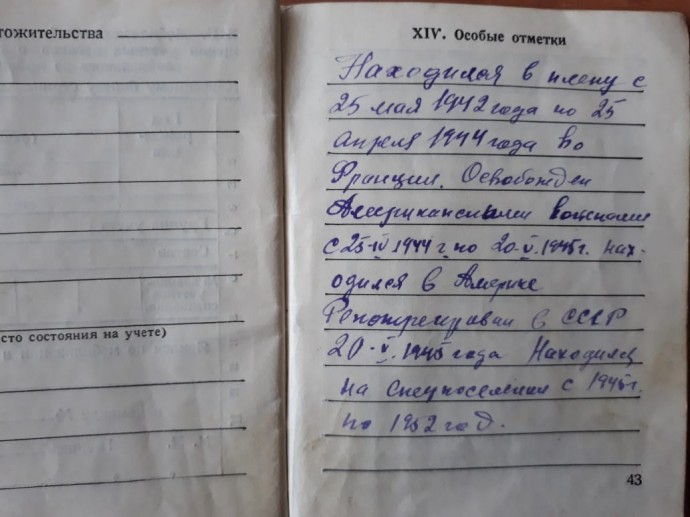 тожительства
сто состояния на учете)
XIV. Особые отметки
Находился в плену с
25 мая 1942 года по 25
апреля 1944 года во
Франции. Освобожден
Американскими войсками
с 25-IV 1944 г. по 20-V. 1945 г. нах-
одился в Америке
Репатреирован в СССР
20-V. 1945 года Находился
на спецпоселении с 1945 г.
по 1952 год.
43